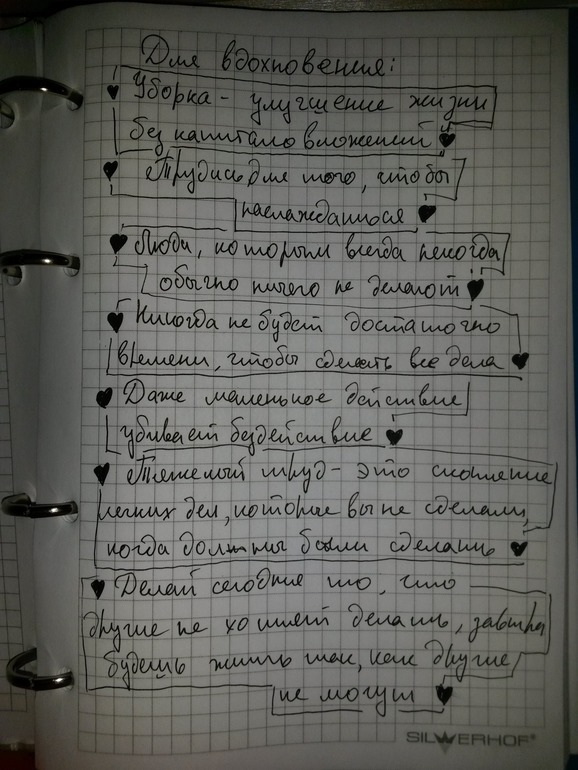 Для вдохновения:
Уборка - улучшение жизни
без капиталовложений
Трудись для того, чтобы
наслаждаться
Люди, которым всегда некогда
обычно ничего не делают
Никогда не будет достаточно
времени, чтобы сделать все дела
Даже маленькое действие
убивает бездействие
Тяжелый труд - это скопление
легких дел, которые вы не сделали,
когда должны были сделать
Делай сегодня то, что
другие не хотят делать, завтра
будешь жить так, как другие
не могут
SILWERHOF®